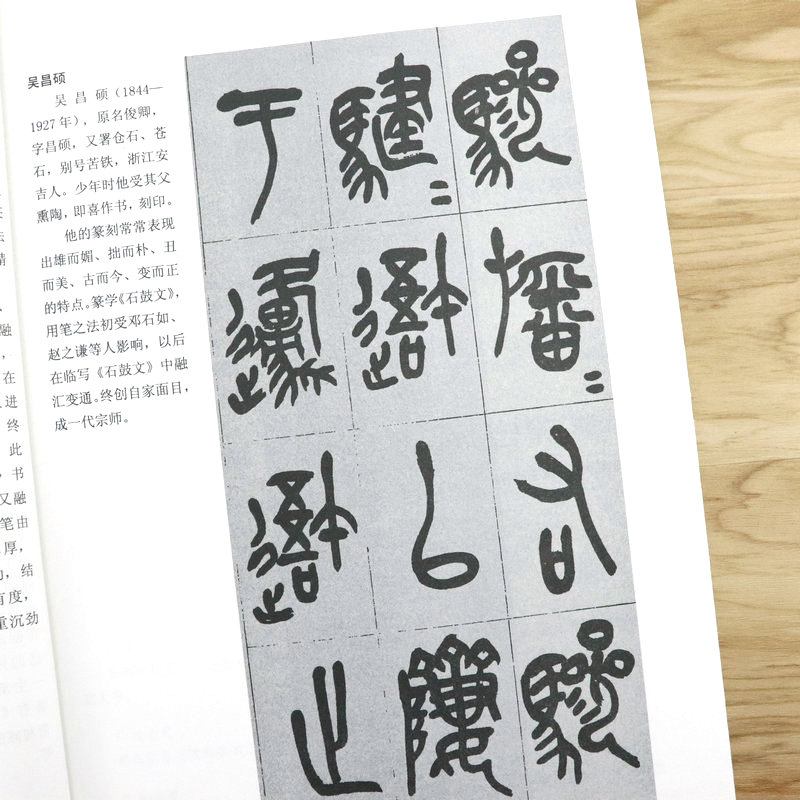 融
在
进
终
此
书
又融
笔由
厚，
，结
有度，
重沉劲
吴昌硕
吴昌硕（1844—
1927年），原名俊卿，
字昌硕，又署仓石、苍
石，别号苦铁，浙江安
吉人。少年时他受其父
熏陶，即喜作书，刻印。
他的篆刻常常表现
出雄而媚、拙而朴、丑
而美、古而今、变而正
的特点。篆学《石鼓文》，
用笔之法初受邓石如、
赵之谦等人影响，以后
在临写《石鼓文》中融
汇变通。终创自家面目，
成一代宗师。
驂旛=右驂
騝=以隮
于邍止